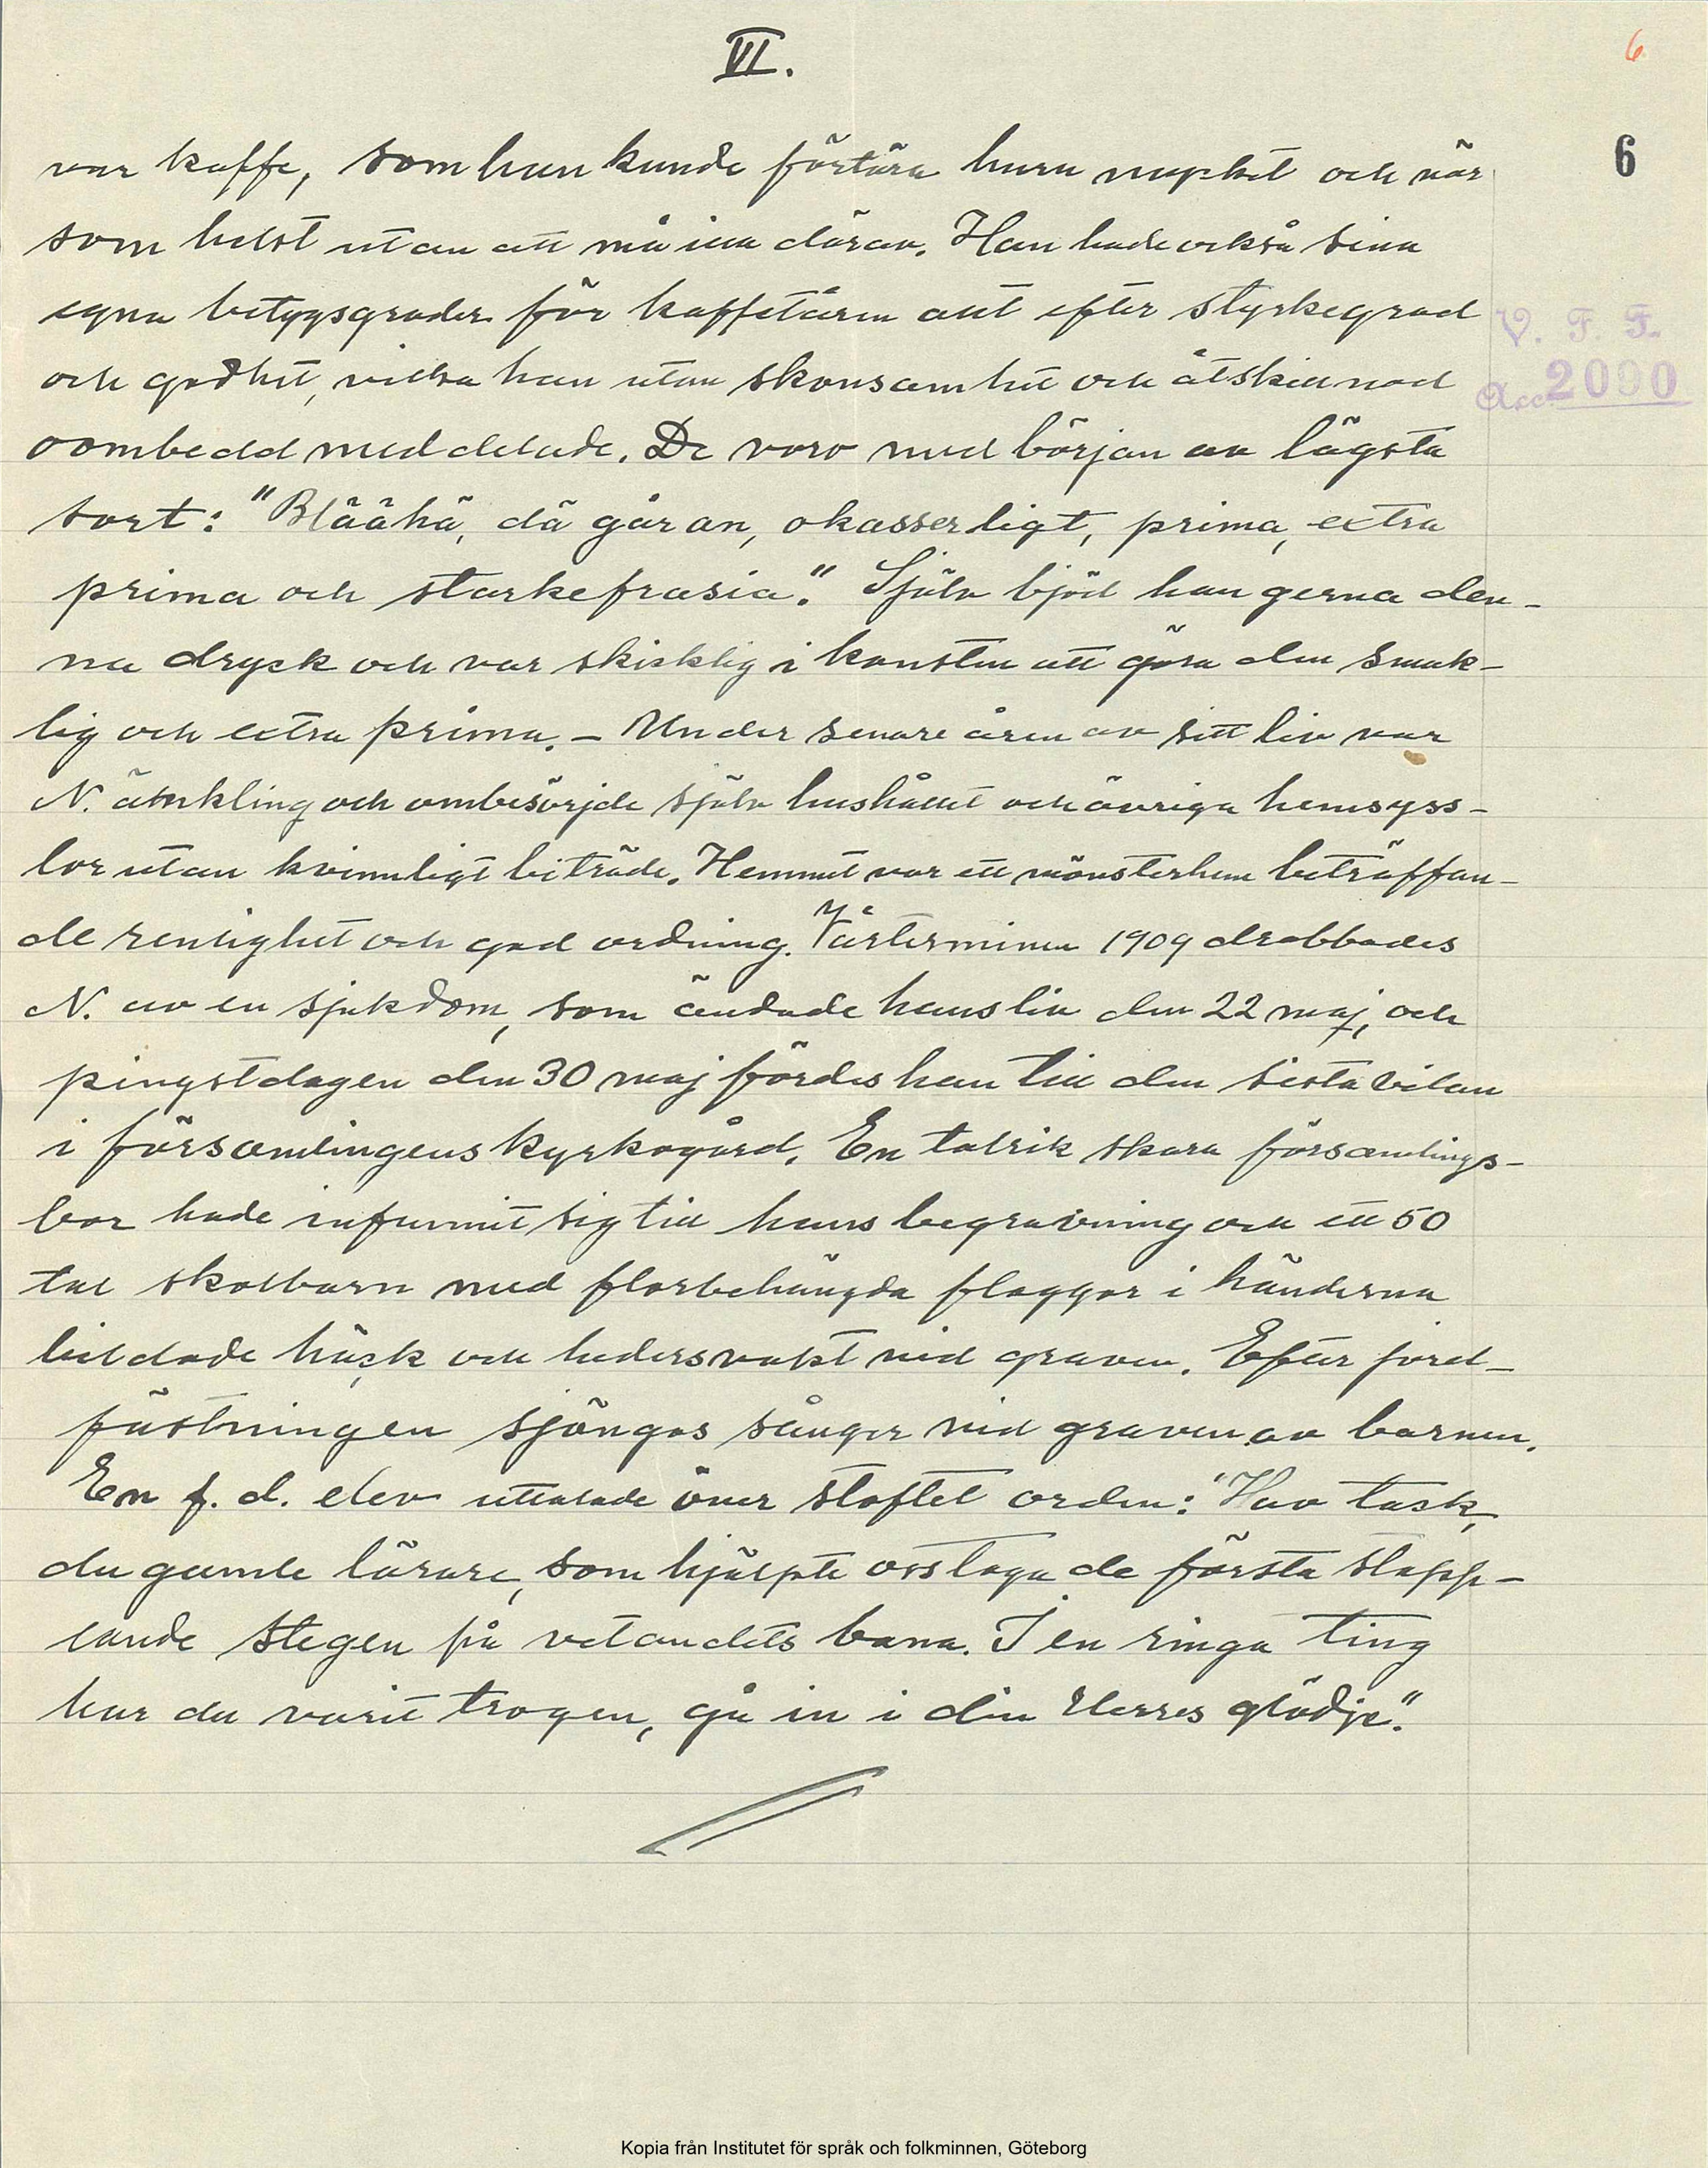 VI.
6
6
var kaffe, som han kunde förtära huru mycket och när
som helst utan att må illa därav. Han hade också sina
egna betygsgrader för kaffetåren allt efter styrkegrad
V. F. F.
och godhet, vilka han utan skonsamhet och åtskillnad
Acc. 2090
oombedd meddelade. De voro med början av lägsta
sort: "Bläähä, dä går an, okasserligt, prima, extra
prima och starkefrasia." Själv bjöd han gerna den-
na dryck och var skicklig i konsten att göra den smak-
lig och extra prima. – Under senare åren av sitt liv var
N. änkling och ombesörjde själv hushållet och övriga hemsyss-
lor utan kvinnligt biträde. Hemmet var ett mönsterhem beträffan-
de renlighet och god ordning. Vårterminen 1909 drabbades
N. av en sjukdom, som ändade hans liv den 22 maj, och
pingstdagen den 30 maj fördes han till den sista vilan
i församlingens kyrkogård. En talrik skara församlings-
bor hade infunnit sig till hans begravning och ett 50
tal skolbarn med florbehängda flaggor i händerna
bildade häck och hedersvakt vid graven. Efter jord-
fästningen sjöngos sånger vid graven av barnen.
En f. d. elev uttalade över stoftet orden: "Hav tack,
du gamle lärare, som hjälpte oss taga de första stapp-
lande stegen på vetandets bana. I en ringa ting
har du varit trogen, gå in i din Herres glädje."
Kopia från Institutet för språk och folkminnen, Göteborg